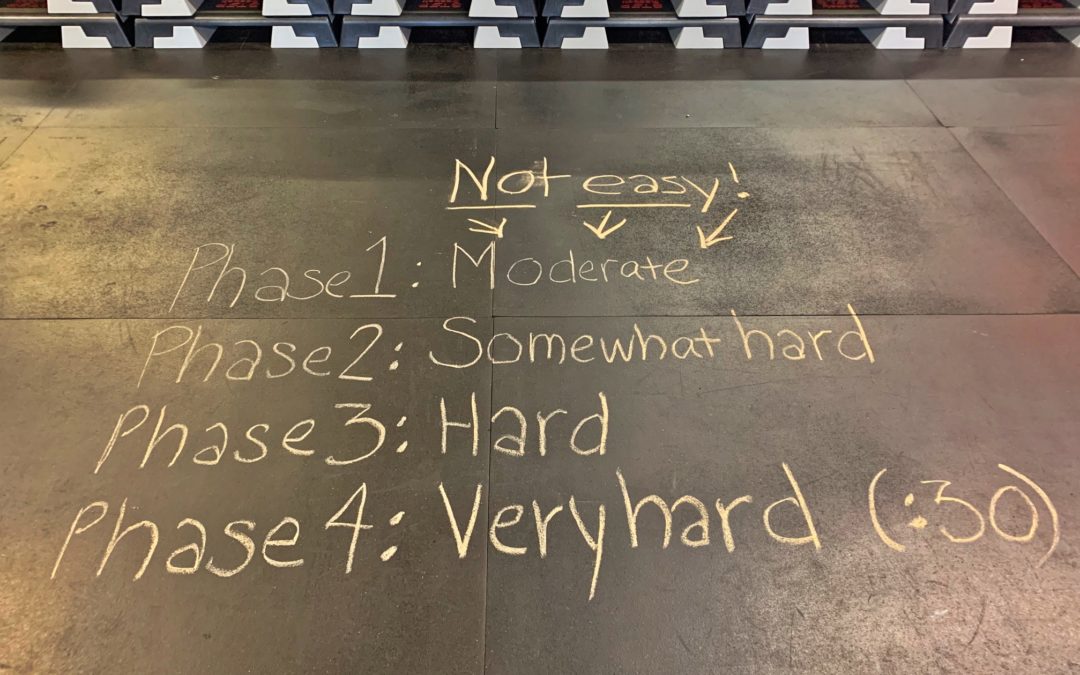 Not easy!
Phase 1: Moderate
Phase 2: Somewhat hard
Phase 3: Hard
Phase 4: Very hard (:30)